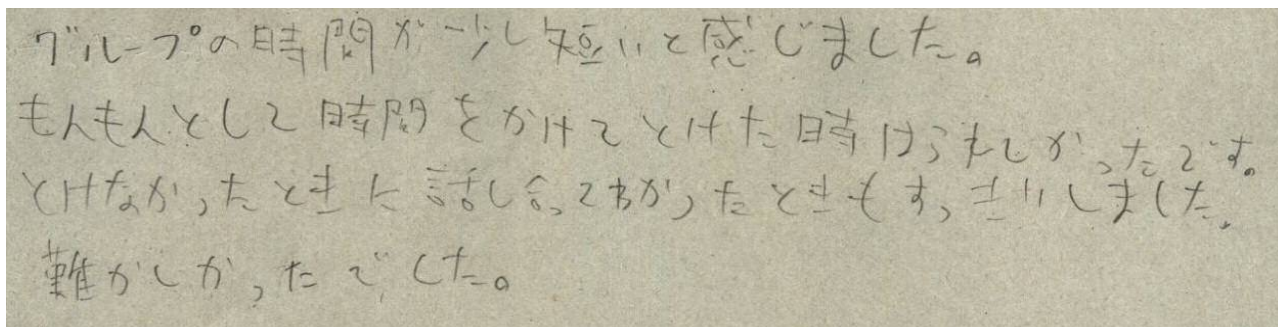 グループの時間が少し短いと感じました。
もんもんとして時間をかけてとけた時はうれしかったです。
とけなかったときに話し合ってわかったときもすっきりしました。
難かしかったでした。